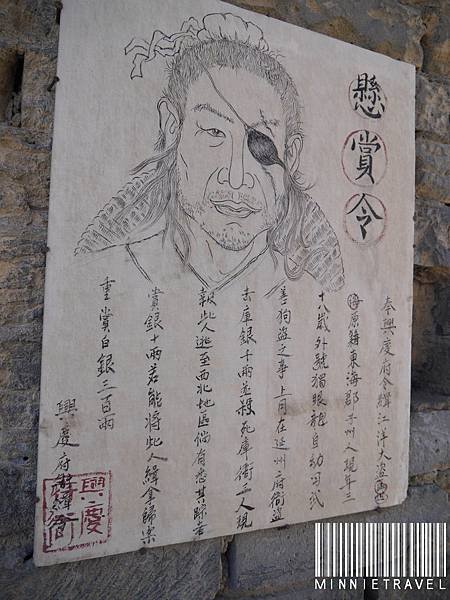 懸賞令
奉興慶府令緝江洋大盜
原籍東海郡 州人現年三
十八歲外號獨眼龍自幼習武
善狗盜之事上月在延州府衙盜
去庫銀千兩並殺死庫衛二人現
報此人逃至西北地區倘有悉其踪者
賞銀十兩若能將此人緝拿歸案
重賞白銀三百兩
興慶府 緝
興慶
衙
MINNIETRAVEL